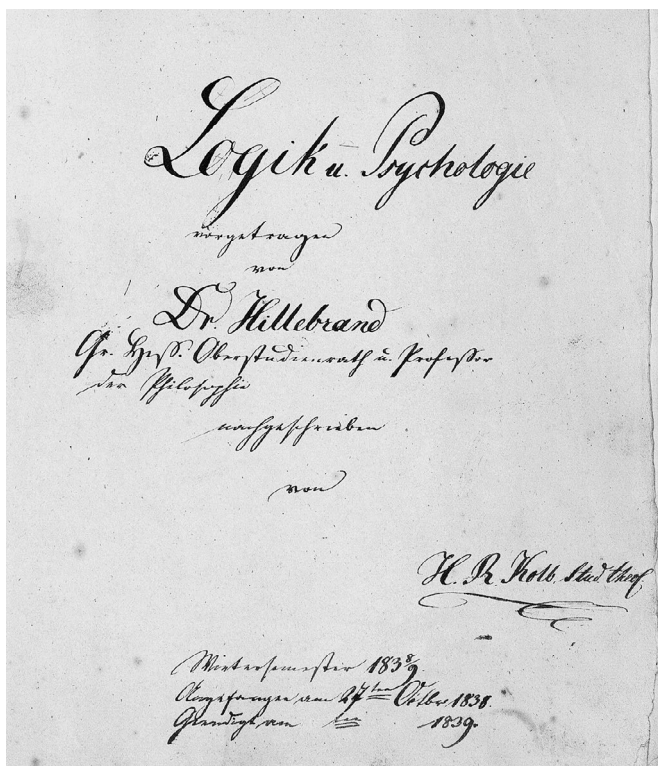 Logik u. Psychologie
vorgetragen
von
Dr. Hillebrand
Gr. Hess. Oberstudienrath u. Professor
der Philosophie
nachgeschrieben
von
H. R. Kolb, Stud. theol.
Wintersemester 1838/9.
Angefangen am 27ten Octbr. 1838.
Geendigt am ten 1839.